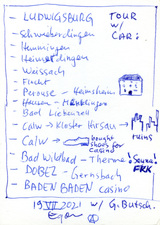 LUDWIGSBURG TOUR
Schwieberdingen w/
Hemmingen CAR:
Heimerdingen
Weissach
Flacht
Perouse - Heimsheim
Hausen - Münklingen
Bad Liebenzell
Calw → Kloster Hirsau →
RUINS
Calw → bought shoes for casino
Bad Wildbad - Therme! Sauna!
FKK
DOBEL - Gernsbach
BADEN BADEN casino
19 VII 2021 w/ G. Butsch.
Egon